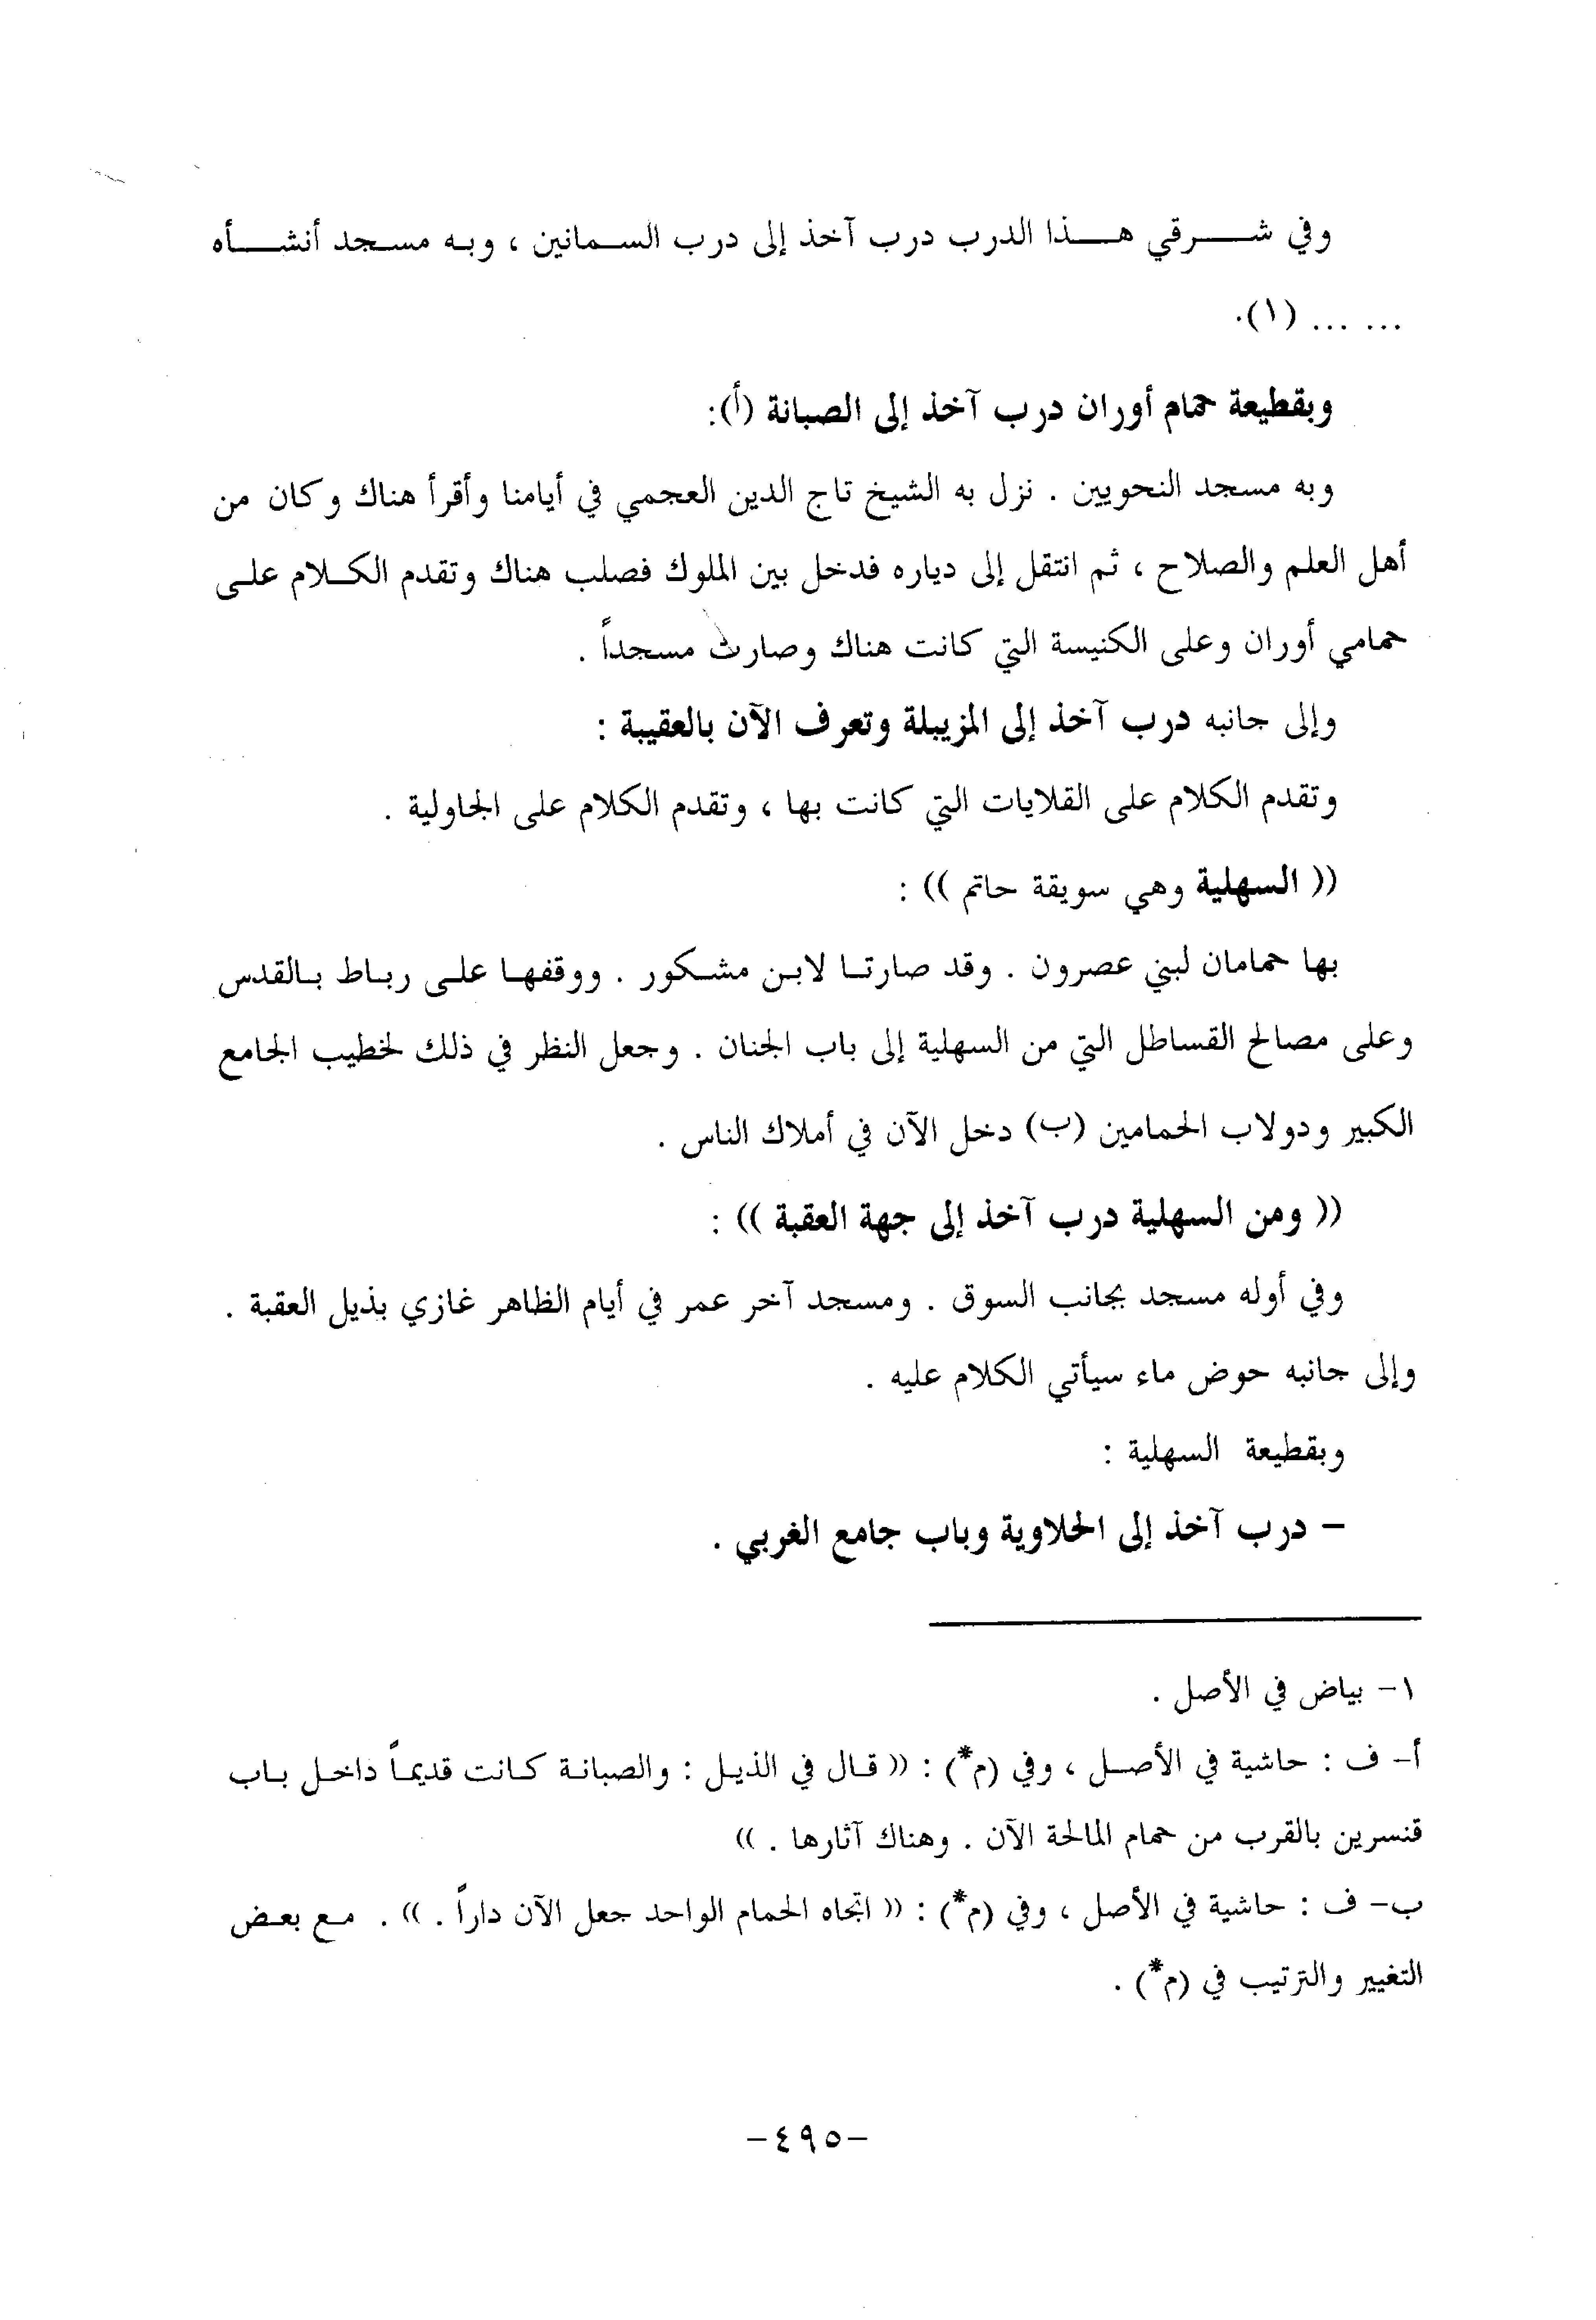 وفي شرقي هذا الدرب درب آخذ إلى درب السمانين ، وبه مسجد أنشأه
... ... (١).
وبقطيعة حمام أوران درب آخذ إلى الصبانة (أ):
وبه مسجد النحويين . نزل به الشيخ تاج الدين العجمي في أيامنا وأقرأ هناك وكان من
أهل العلم والصلاح ، ثم انتقل إلى دياره فدخل بين الملوك فصلب هناك وتقدم الكلام على
حمامي أوران وعلى الكنيسة التي كانت هناك وصارت مسجداً .
وإلى جانبه درب آخذ إلى المزيبلة وتعرف الآن بالعقيبة :
وتقدم الكلام على القلايات التي كانت بها ، وتقدم الكلام على الجاولية .
(( السهلية وهي سويقة حاتم )) :
بها حمامان لبني عصرون . وقد صارتا لابن مشكور . ووقفها على رباط بالقدس
وعلى مصالح القساطل التي من السهلية إلى باب الجنان . وجعل النظر في ذلك لخطيب الجامع
الكبير ودولاب الحمامين (ب) دخل الآن في أملاك الناس .
(( ومن السهلية درب آخذ إلى جهة العقبة )) :
وفي أوله مسجد بجانب السوق . ومسجد آخر عمر في أيام الظاهر غازي بذيل العقبة .
وإلى جانبه حوض ماء سيأتي الكلام عليه .
وبقطيعة السهلية :
– درب آخذ إلى الحلاوية وباب جامع الغربي .
١- بياض في الأصل .
أ- ف : حاشية في الأصل ، وفي (م*) : (( قال في الذيل : والصبانة كانت قديماً داخل باب
قنسرين بالقرب من حمام المالحة الآن . وهناك آثارها . ))
ب- ف : حاشية في الأصل ، وفي (م*) : (( اتجاه الحمام الواحد جعل الآن داراً . )) . مع بعض
التغيير والترتيب في (م*) .
-٤٩٥-